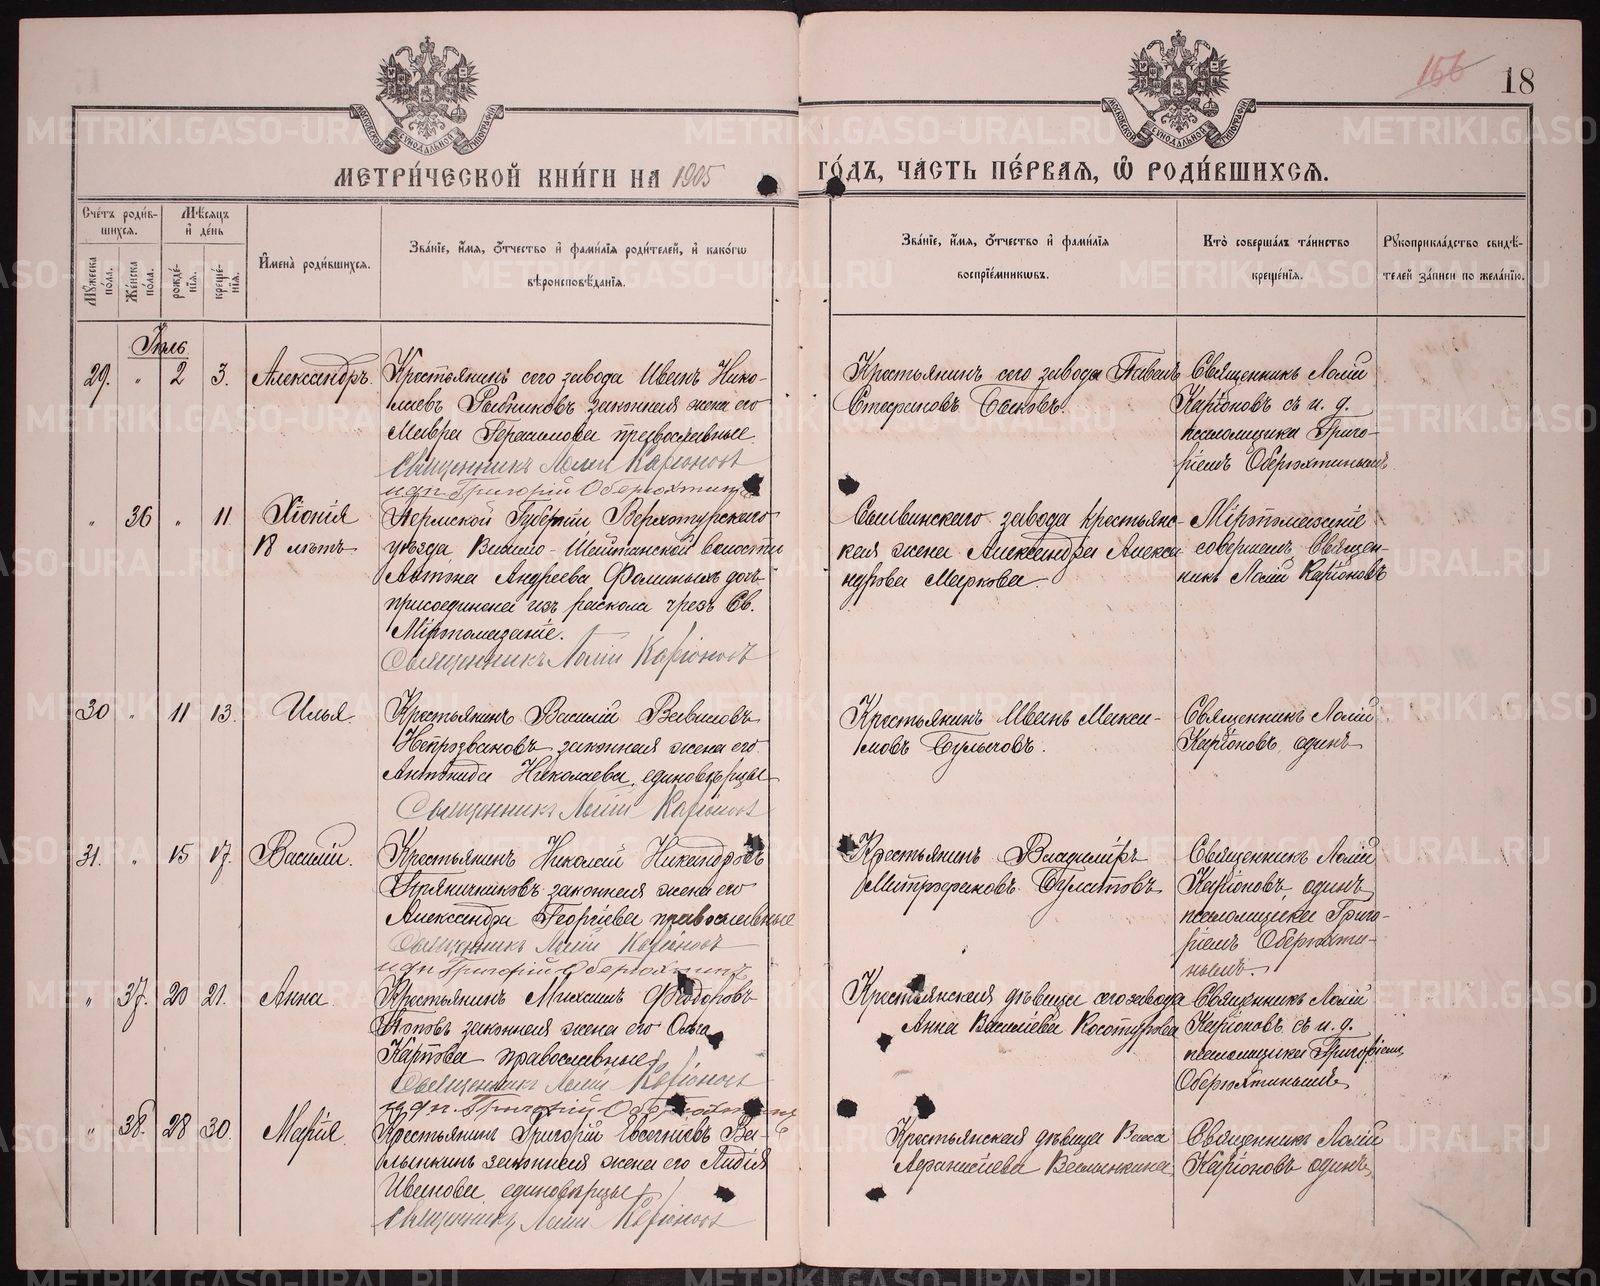 156
18
МЕТРИ́ЧЕСКОЙ КНИ́ГИ НА 1905
ГО́ДЪ, ЧА́СТЬ ПЕ́РВАЯ, Ѽ РОДИ́ВШИХСѦ.
МОСКОВСКОЙ СѴНОДАЛЬНОЙ ТИПОГРАФІИ
МОСКОВСКОЙ СѴНОДАЛЬНОЙ ТИПОГРАФІИ
Сче́тъ роди́в-
шихсѧ.
Мꙋ́жеска по́ла.
Же́нска по́ла.
Мѣ́сяцъ
и҆ де́нь
рожде́-
нїѧ.
креще́-
нїѧ.
И҆мена̀ роди́вшихсѧ.
Зва́нїе, и҆́мѧ, ѻ҆́тчество и҆ фами́лїѧ роди́телей, и҆ како́гѡ
вѣроисповѣ́данїѧ.
Зва́нїе, и҆́мѧ, ѻ҆́тчество и҆ фами́лїѧ
воспрїе́мникѡвъ.
Кто̀ соверша́лъ та́инство
креще́нїѧ.
Рꙋкоприкла́дство свидѣ́-
телей за́писи по жела́нїю.
Іюль
29. " 2 3. Александръ.
Крестьянинъ сего завода Иванъ Нико-
лаевъ Рыбниковъ законная жена его
Мавра Герасимова православные
Священникъ Лолій Каріоновъ
и д п. Григорій Оберюхтинъ
Крестьянинъ сего завода Павелъ
Стефановъ Быковъ.
Священникъ Лолій
Каріоновъ съ и. д.
псаломщика Григо-
ріемъ Оберюхтинымъ
" 36 " 11 Хіонія
18 лѣтъ
Пермской Губерніи Верхотурскаго
уѣзда Висимо-Шайтанской волости
Антона Андреева Фолиныхъ дочь
присоединена изъ раскола чрезъ Св.
Мѵропомазаніе.
Священникъ Лолій Каріоновъ
Сылвинскаго завода крестьянс-
кая жена Александра Алекса
ндрова Маркова
Мѵропомазаніе
совершалъ Священ-
никъ Лолій Каріоновъ
30 " 11 13. Илья.
Крестьянинъ Василій Вавиловъ
Непрозвановъ законная жена его
Антонида Николаева, единовѣрцы
Священникъ Лолій Каріоновъ
Крестьянинъ Иванъ Макси-
мовъ Булычовъ.
Священникъ Лолій
Каріоновъ одинъ
31. " 15 17. Василій.
Крестьянинъ Николай Никандровъ
Пряничниковъ законная жена его
Александра Георгіева православные
Священникъ Лолій Каріоновъ
и д п Григорій Оберюхтинъ
Крестьянинъ Владиміръ
Митрофановъ Булатовъ
Священникъ Лолій
Каріоновъ одинъ
псаломщика Григо-
ріемъ Оберюхти-
нымъ.
" 37. 20 21. Анна.
Крестьянинъ Михаилъ Ѳедоровъ
Поповъ законная жена его Ольга
Карпова православные
Священникъ Лолій Каріоновъ
и д п. Григорій Оберюхтинъ
Крестьянская дѣвица сего завода
Анна Василіева Косотурова
Священникъ Лолій
Каріоновъ съ и. д.
псаломщика Григоріемъ
Оберюхтинымъ
" 38. 28 30. Марія.
Крестьянинъ Григорій Евсегніевъ Ва-
лынкинъ законная жена его Лидія
Иванова, единовѣрцы
Священникъ Лолій Каріоновъ
Крестьянская дѣвица Васса
Аѳанасіева
Священникъ Лолій
Каріоновъ одинъ
METRIKI.GASO-URAL.RU